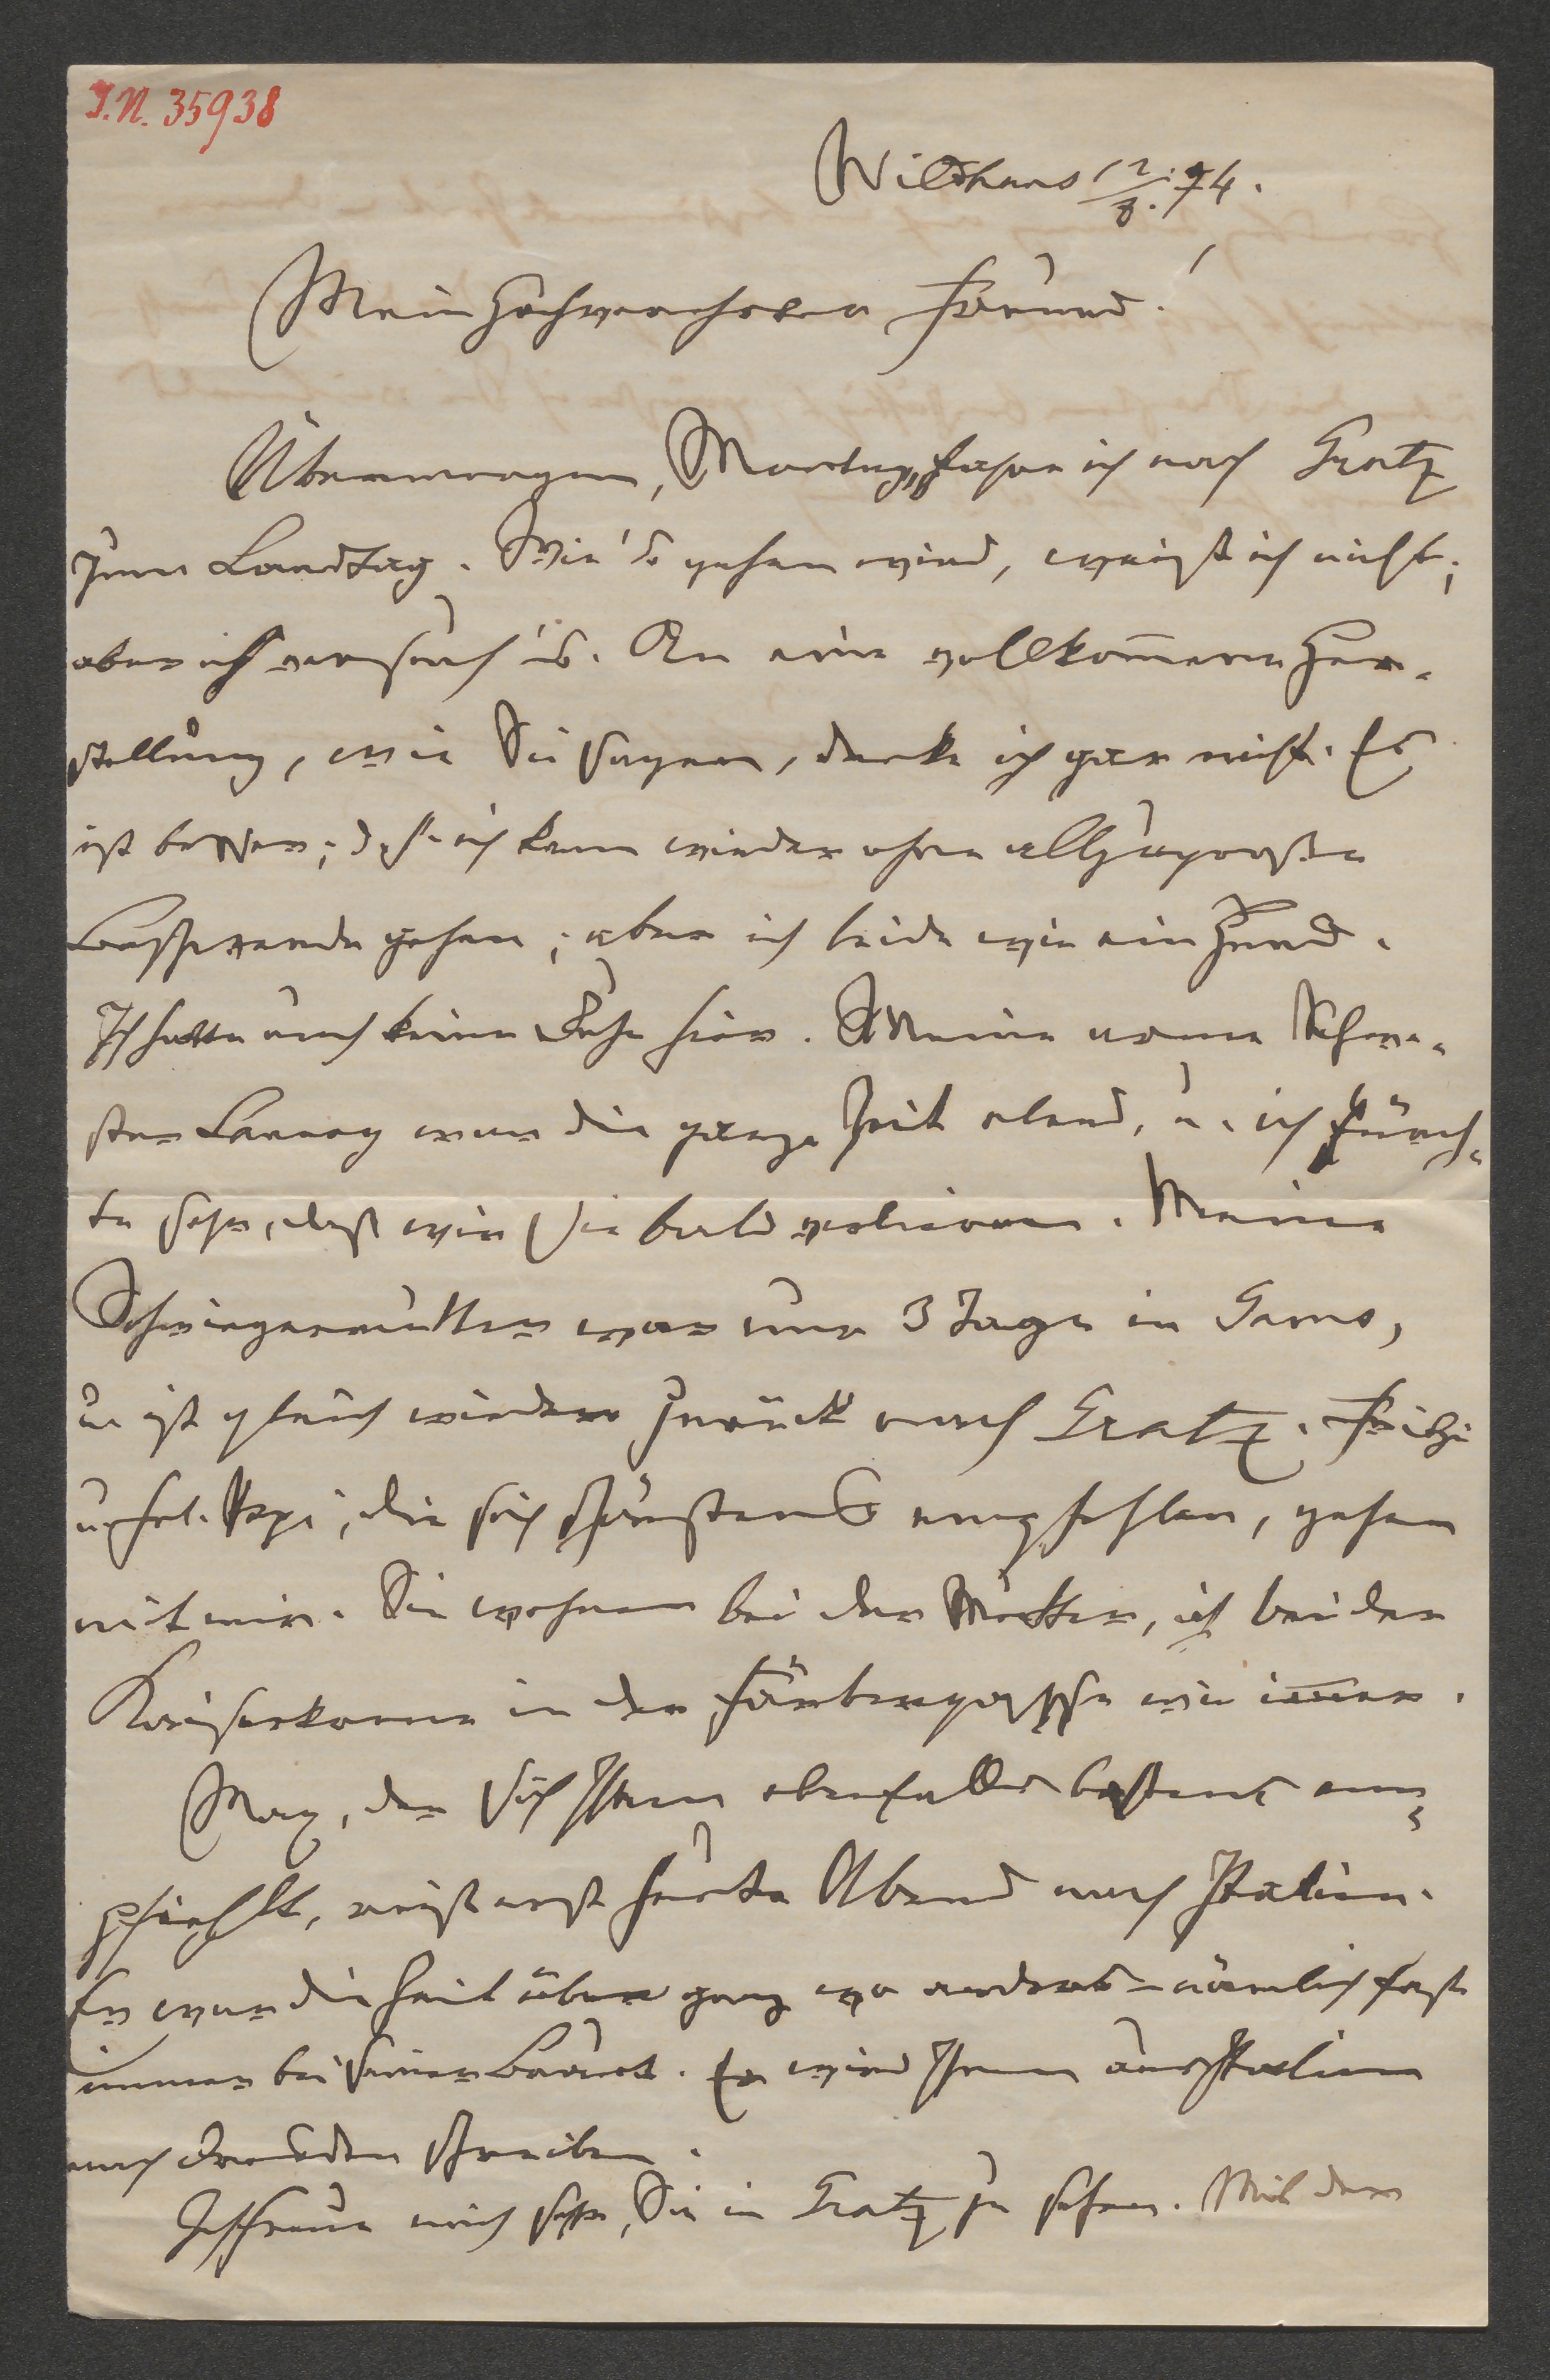 I.N. 35938
Wildhaus 12/8. 74.
Mein hochverehrter Freund!
Übermorgen, Montag, fahre ich nach Gratz
zum Landtag. Wie's gehen wird, weiß ich nicht;
aber ich versuch's. An eine vollkom̅ene Her-
stellung, wie Sie sagen, denke ich gar nicht. Es
ist besser; d. h. ich kann wieder ohne allzugroße
Beschwerde gehen; aber ich leide wie ein Hund.
Ich hatte auch keine Ruhe hier. Meine arme Schwe-
ster war die ganze Zeit elend, u. ich fürch-
te sehr, daß wir sie bald verlieren. Meine
Schwiegermutter war nur 3 Tage in Gams,
u. ist gleich wieder zurück nach Gratz. Fritzi
u. Frl. Pepi, die sich schönstens empfehlen, gehen
mit mir. Sie wohnen bei der Mutter, ich bei der
Kaiserkrone in der Färbergasse wie im̅er.
Max, der sich Ihnen ebenfalls bestens em-
pfiehlt, reist erst heute Abend nach Italien.
Er war die Zeit über ganz wo anders – nämlich fast
immer bei seiner Braut. Er wird Ihnen aus Italien
nach Dresden schreiben.
Ich freue mich sehr, Sie in Gratz zu sehen. Mit der